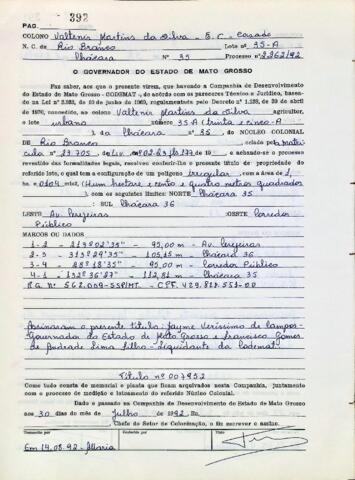 PAG. 392
COLONO Valtenir Martins da Silva - E.C. - Casado
N. C. de Rio Branco Lote nº 35-A
Chácara Nº 35 Processo nº 2362/92
O GOVERNADOR DO ESTADO DE MATO GROSSO
Faz saber, aos que o presente virem, que havendo a Companhia de Desenvolvimento
do Estado de Mato Grosso - CODEMAT -, de acôrdo com os pareceres Técnico e Jurídico, basea-
dos na Lei nº de de junho de 1969, regulamentada pelo Decreto nº de 20 de abril
de 1976, concedido, ao colono Valtenir Martins da Silva agricultor,
o lote urbano número 35 A (trinta e cinco - A
) da Chácara nº 35, do NÚCLEO COLONIAL
DE Rio Branco criado pela matrí
cula nº 23.705 do Liv. nº e achando-se o processo
revestido das formalidades legais, resolve conferir-lhe o presente título de propriedade do
referido lote, o qual tem a configuração de um polígono irregular, com a área de 1,
ha 0104 mts2, (Hum hectare e cento e quatro metros quadrados
) com os seguintes limites: NORTE Chácara 35
: SUL Chácara 36
LESTE Av. Laranjeiras OESTE Corredor
Público
MARCOS OU DADOS
1-2 - 213º02'35" - 95,00 m - Av. Laranjeiras
2-3 - 313º29'35" - 105,15 m - Chácara 36
3-4 - 28º18'35" - 95,00 m - Corredor Público
4-1 - 132º36'27" - 112,81 m - Chácara 35
R.G. Nº 562.009-SSP/MT - CPF. 429.818.551-00
Assinaram o presente título: Jayme Veríssimo de Campos -
Governador do Estado de Mato Grosso e Francisco Gomes
de Andrade Lima Filho - Liquidante da Codemat.
Título nº 007952
Como tudo consta do memorial e planta que ficam arquivados nesta Companhia, juntamente
com o processo de medição e loteamento do referido Núcleo Colonial.
Dado e passado na Companhia de Desenvolvimento do Estado de Mato Grosso
aos 30 dias do mês de Julho de 1992. Eu,
Chefe do Setor de Colonização, o fiz escrever e assino.
Em 14.08.92